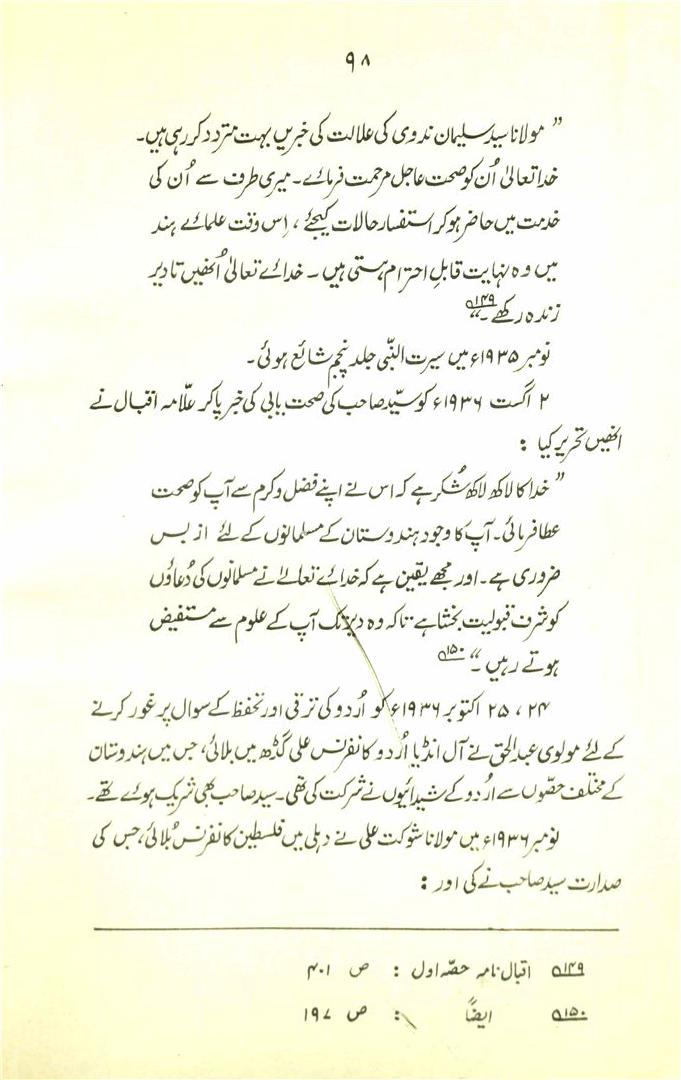 ۹۸
” مولانا سید سلیمان ندوی کی علالت کی خبریں بہت متردد کر رہی ہیں۔
خدا تعالیٰ اُن کو صحت عاجل مرحمت فرمائے۔ میری طرف سے اُن کی
خدمت میں حاضر ہو کر استفسار حالات کیجئے ، اِس وقت علمائے ہند
میں وہ نہایت قابلِ احترام ہستی ہیں ۔ خدائے تعالیٰ اُنھیں تا دیر
زندہ رکھے ۔“ ۱۴۹؎
نومبر ۱۹۳۵ء میں سیرت النّبی جلد پنجم شائع ہوئی ۔
۲ اگست ۱۹۳۶ء کو سیّد صاحب کی صحت یابی کی خبر پا کر علّامہ اقبال نے
انھیں تحریر کیا :
” خدا کا لاکھ لاکھ شُکر ہے کہ اس نے اپنے فضل و کرم سے آپ کو صحت
عطا فرمائی۔ آپ کا وجود ہندوستان کے مسلمانوں کے لئے از بس
ضروری ہے۔ اور مجھے یقین ہے کہ خدائے تعالےٰ نے مسلمانوں کی دُعاؤں
کو شرف قبولیت بخشا ہے تاکہ وہ دیر تک آپ کے علوم سے مستفیض
ہوتے رہیں ۔“ ۱۵۰؎
۲۴ ، ۲۵ اکتوبر ۱۹۳۶ء کو اُردو کی ترقی اور تحفظ کے سوال پر غور کرنے
کے لئے مولوی عبدالحق نے آل انڈیا اُردو کانفرنس علی گڈھ میں بلائی، جس میں ہندوستان
کے مختلف حصّوں سے اردو کے شیدائیوں نے شرکت کی تھی۔ سید صاحب بھی شریک ہوئے تھے۔
نومبر ۱۹۳۶ء میں مولانا شوکت علی نے دہلی میں فلسطین کانفرنس بُلائی، جس کی
صدارت سید صاحب نے کی اور :
۱۴۹؎ اقبال نامہ حصّہ اول : ص ۴۰۱
۱۵۰؎ ایضاً : ص ۱۹۷